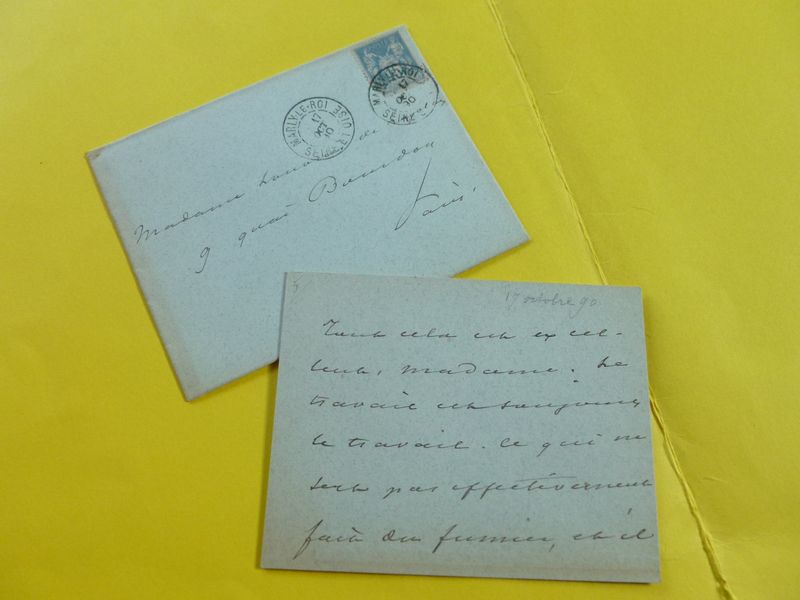 MARLY-LE-ROI
17
OCT
90
SEINE ET OISE
MARLY-LE-ROI
17
90
SEINE
Madame de
9 quai Bourbon
Paris.
17 octobre 90
Tout cela est excel-
lent, madame. Le
travail est toujours
le travail. Ce qui ne
sert pas effectivement
fait du fumier, et il